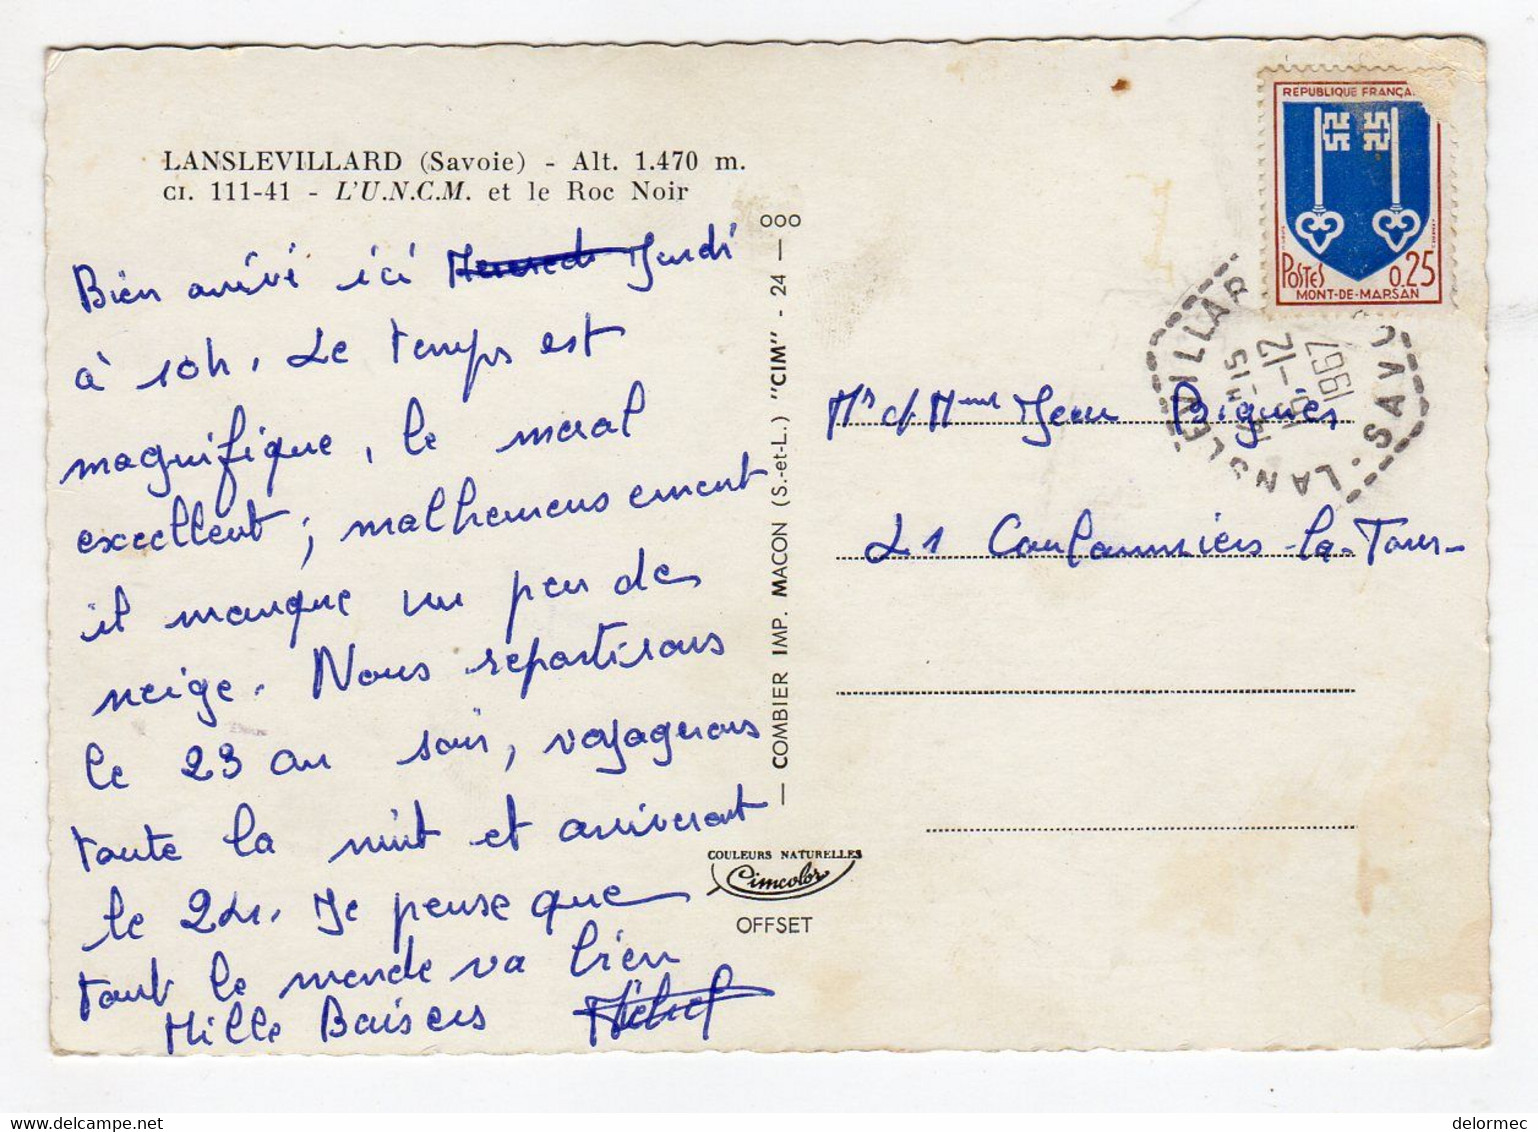 LANSLEVILLARD (Savoie) - Alt. 1.470 m.
CI. 111-41 - L'U.N.C.M. et le Roc Noir
Bien arrivé ici Mardi
à 10h. Le temps est
magnifique, le moral
excellent ; malheureusement
il manque un peu de
neige. Nous repartirons
le 23 au soir, voyagerons
toute la nuit et arriverons
le 24. Je pense que
tout le monde va bien
Mille Baisers Michel
COMBIER IMP. MACON (S.-et-L.) "CIM" - 24 - ooo
COULEURS NATURELLES
Cimcolor
OFFSET
REPUBLIQUE FRANÇA
POSTES 0,25
MONT-DE-MARSAN
LANSLEVILLAR
SAV
14H15
19-12
1967
Mr et Mme Jean
21 Coulommiers-la-Tour
delormec